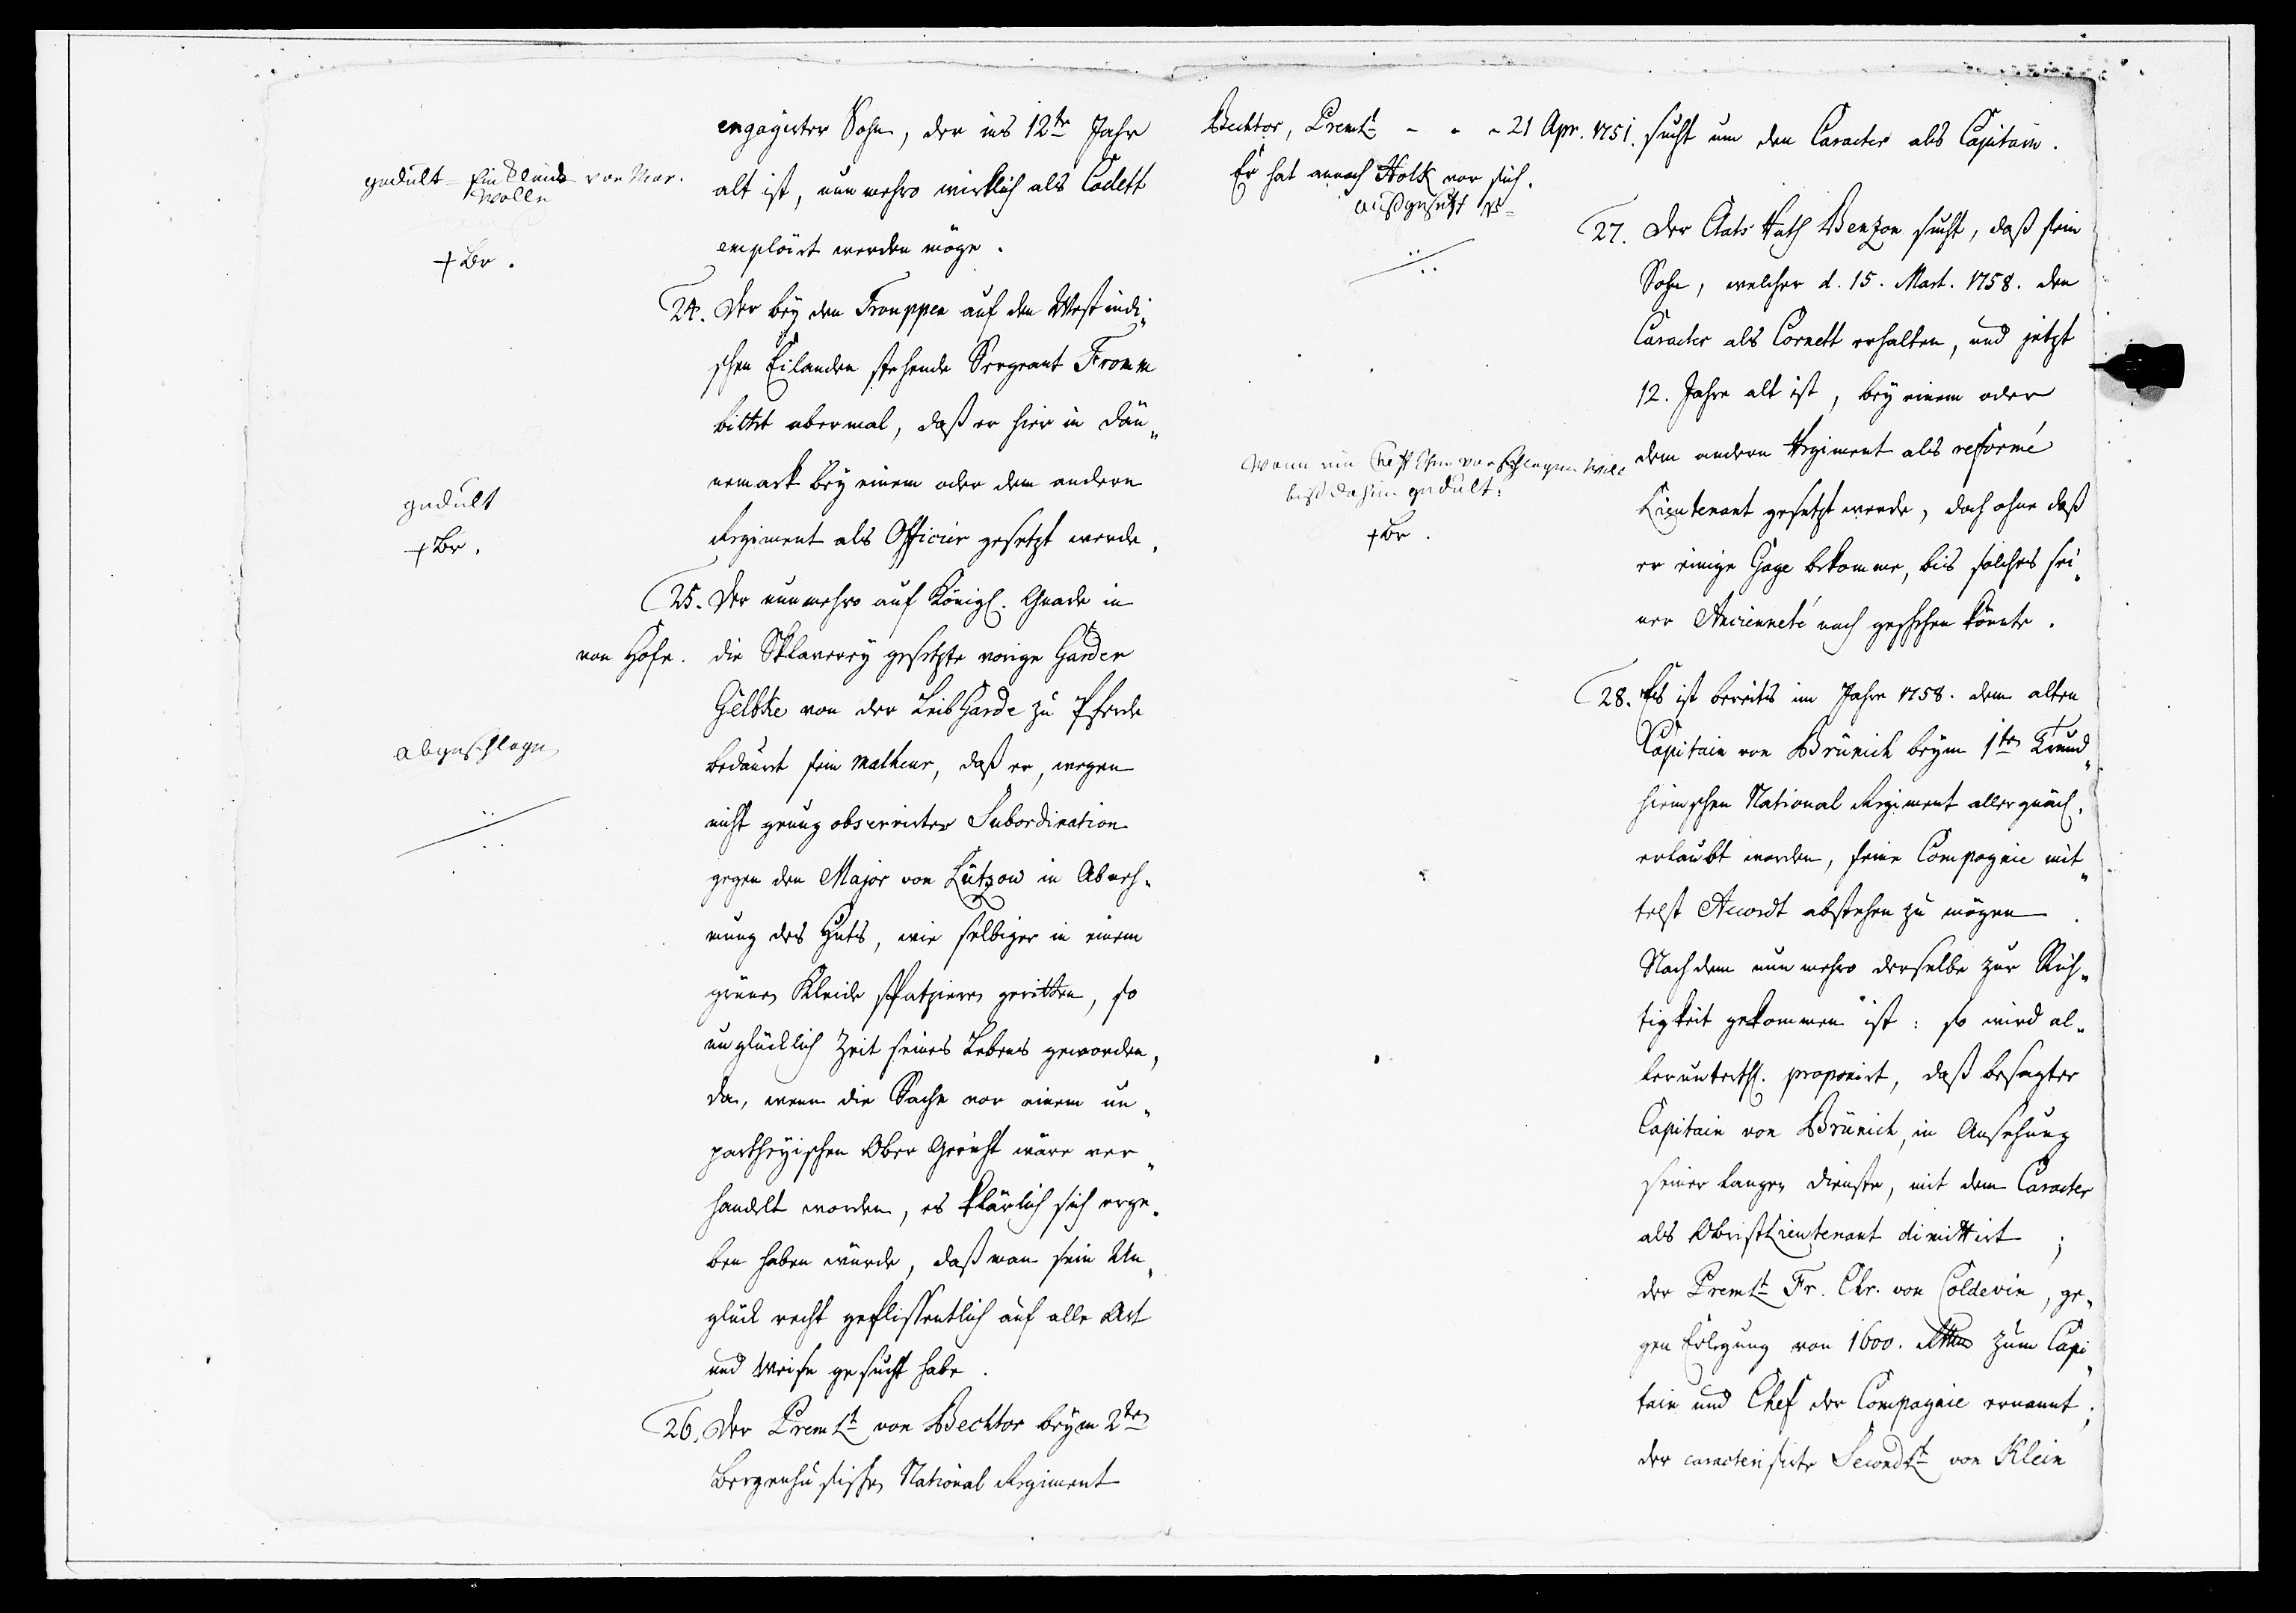 engagirter Sohn, der ins 12te Jahr
gedult von Mar.
wolle
alt ist, nunmehro wirklich als Cadett
employirt werden möge.
+ Br.
24. Der bey den Trouppen auf den Westindi„
schen Eilanden stehende Sergeant Fromm
bittet abermal, daß er hier in Dän„
nemark bey einem oder dem andern
gedult
Regiment als Officier gesetzt werde.
+ Br.
25. Der nunmehro auf Königl. Gnade in
von Hofe.
die Sklaverey gesetzte vorige Garder
Gelbke von der LeibGarde zu Pferde
abgeschlagen
bedauret sein malheur, daß er, wegen
nicht genug observirter Subordination
gegen den Major von Lützow in Abneh„
mung des Huts, wie selbiger in einem
grünen Kleide spatzieren geritten, so
unglücklich Zeit seines Lebens geworden,
da, wenn die Sache vor einem un„
partheyischen Ober Gericht wäre ver„
handelt worden, es klärlich sich erge„
ben haben würde, daß man sein Un„
glück recht geflissentlich auf alle Art
und Weise gesucht habe.
26. Der Premlt von Bechtor beym 2ten
Bergenhusischen National Regiment
Bechtor, Premlt - - - 21 Apr. 1751.
Er hat annoch Holk vor sich.
außgesetzt
sucht um den Caracter als Capitain.
27. Der Etats Rath Benzon sucht, daß sein
Sohn, welcher d. 15. Mart. 1758. den
Caracter als Cornett erhalten, und jetzt
12. Jahre alt ist, bey einem oder
Wenn ein Chef Ihm vorschlagen will
biß dahin gedult:
+ Br.
dem andern Regiment als reformé
Lieutenant gesetzt werde, doch ohne daß
er einige Gage bekomme, bis solches sei„
ner Ancienneté nach geschehen könnte.
28. Es ist bereits im Jahre 1758. dem alten
Capitain von Brünich beym 1ten Trund„
hiemschen National Regiment allergnäd.
erlaubt worden, seine Compagnie mit„
telst Accordt abstehen zu mögen.
Nachdem nunmehro derselbe zur Rich„
tigkeit gekommen ist: so wird al„
lerunterth. proponirt, daß besagter
Capitain von Brünich, in Ansehung
seiner langen Dienste, mit dem Caracter
als ObristLieutenant dimittirt;
der Premlt Fr. Chr. von Coldevin, ge„
gen Erlegung von 1600. Rthlr zum Capi„
tain und Chef der Compagnie ernannt;
der caracterisirte Secondlt von Klein